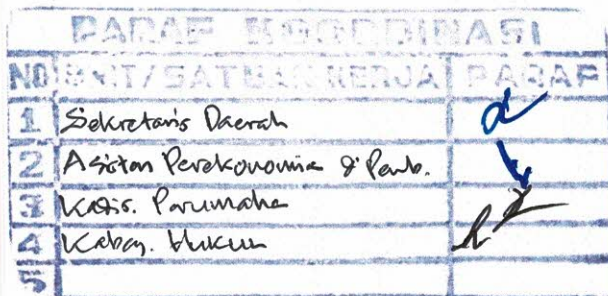 PARAF KOORDINASI
NO UNIT/SATUAN KERJA PARAF
1 Sekretaris Daerah
2 Asisten Perekonomia & Pemb.
3 Kadis. Perumaha
4 Kabag. Hukum
5